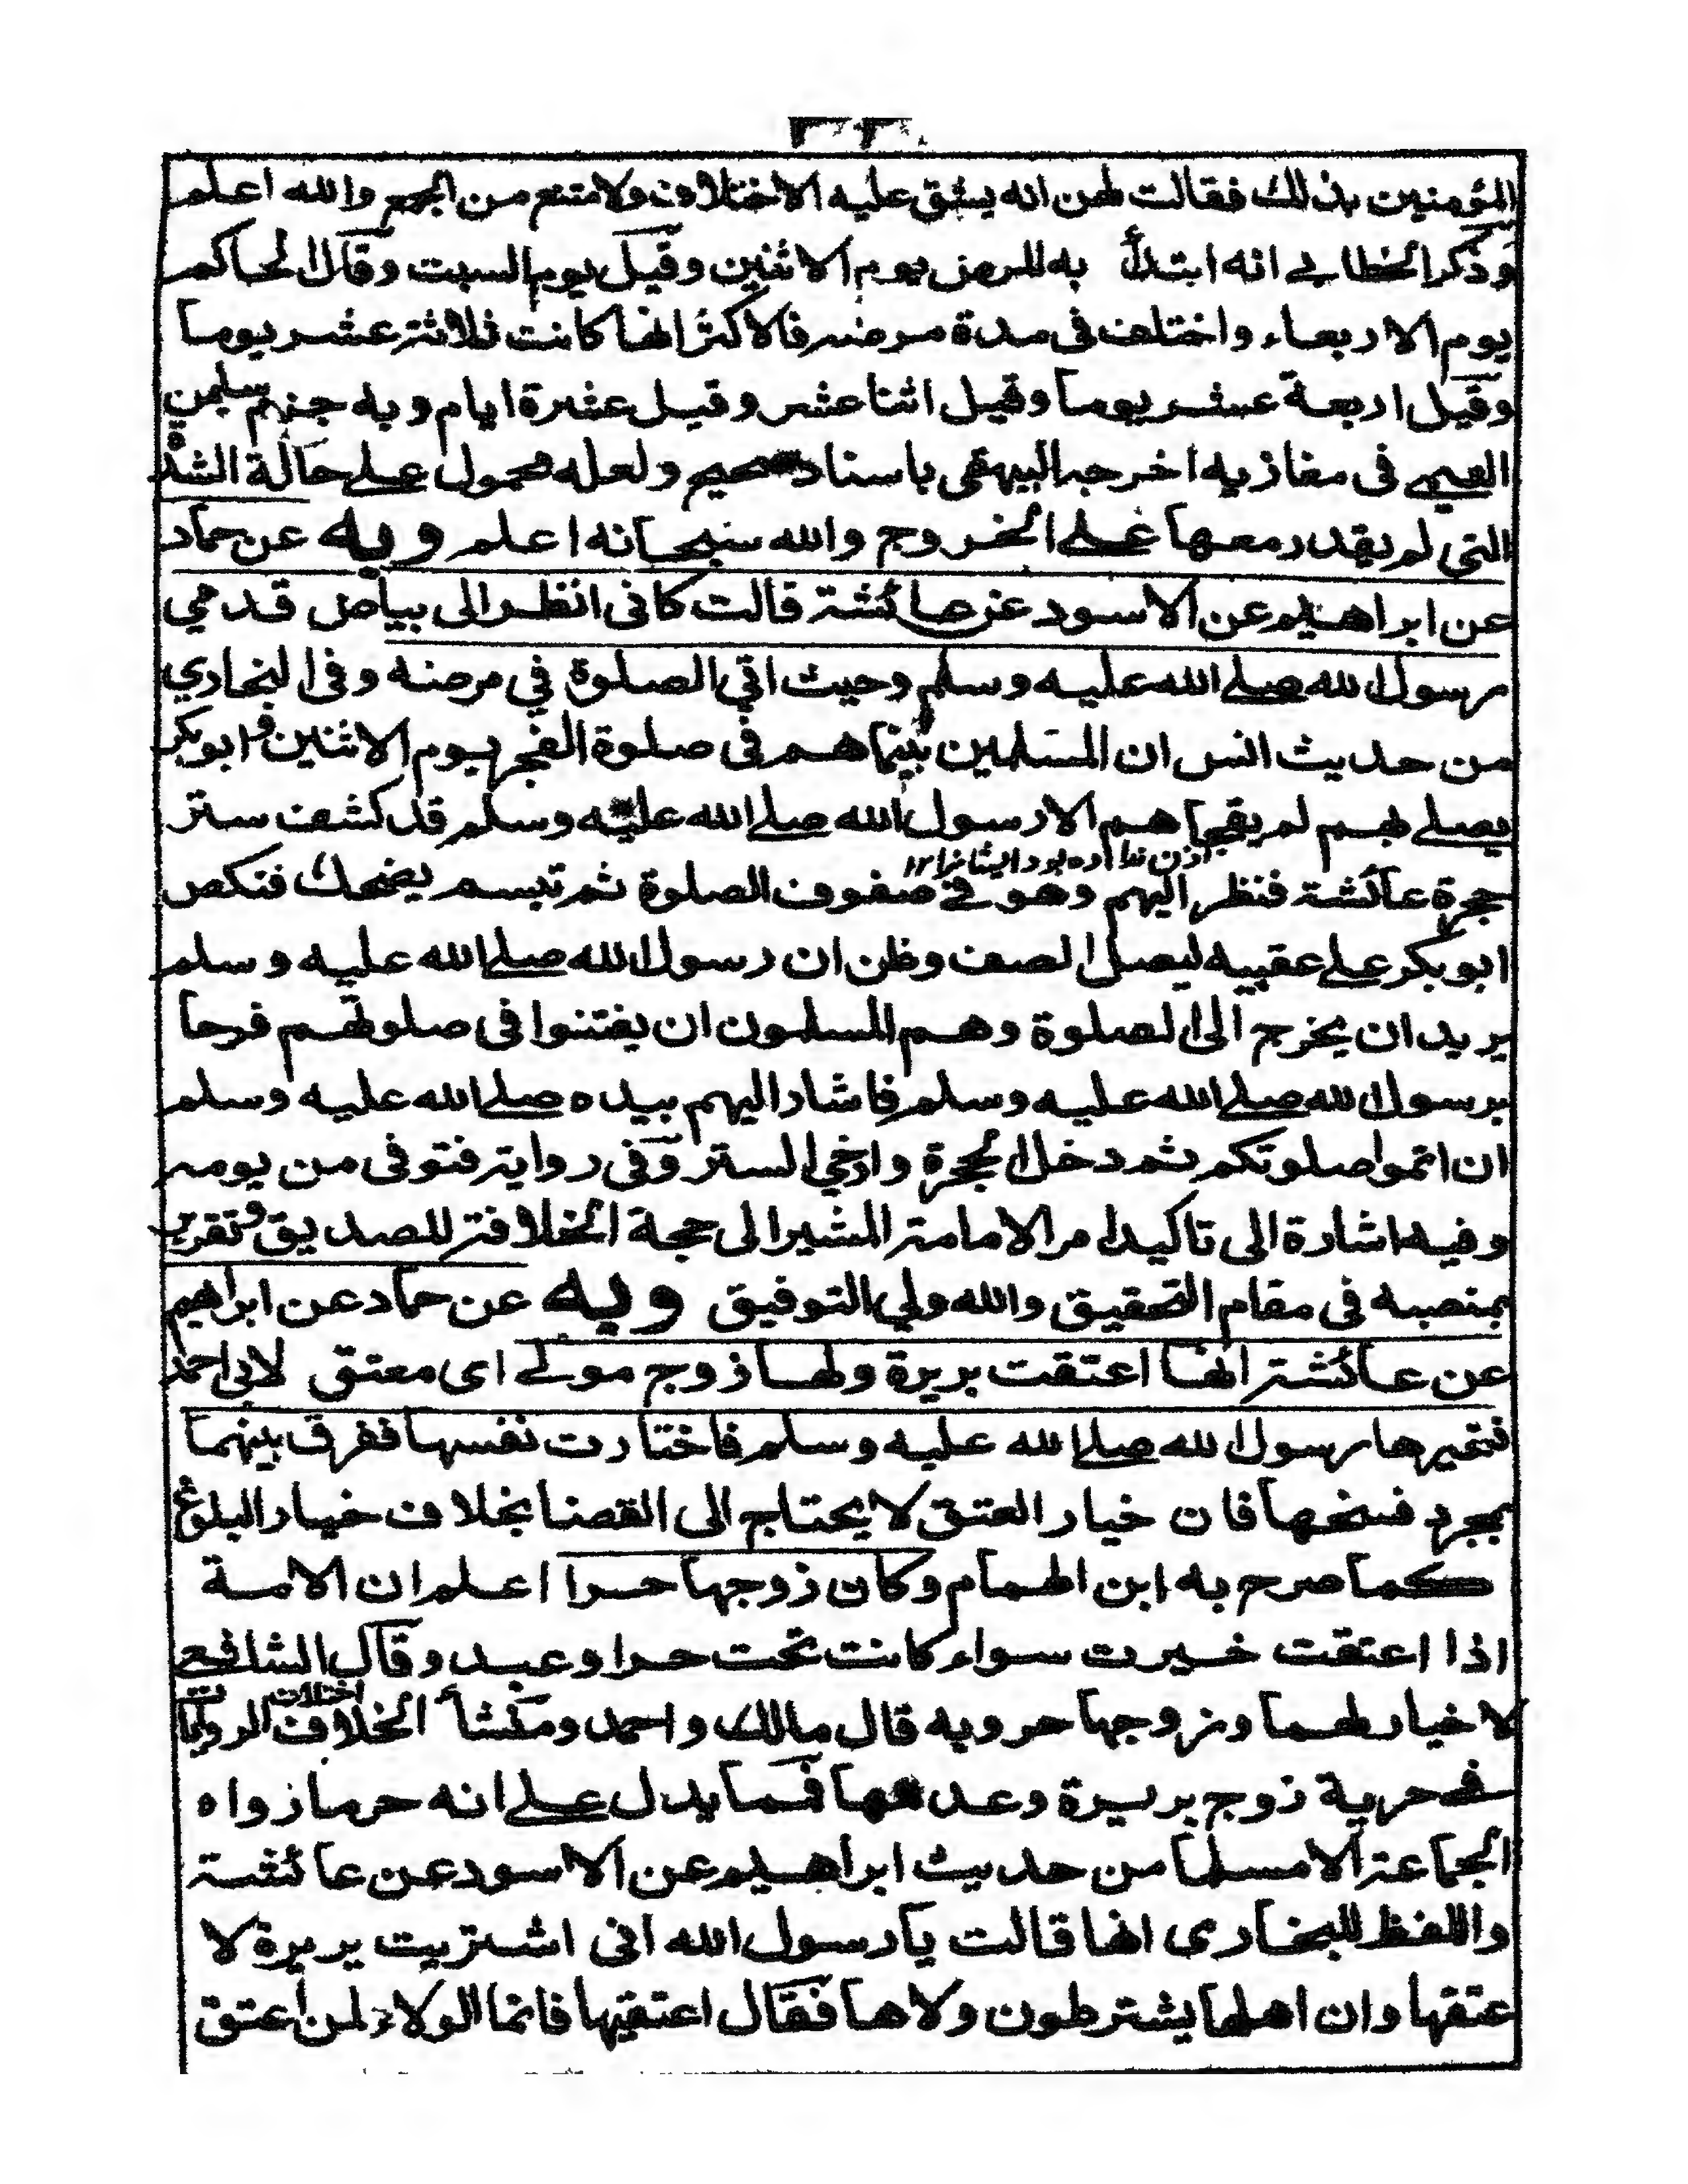 المؤمنين بذلك فقالت لهن انه يشق عليه الاختلاف ولا متنع من الجمع والله اعلم
وذكر الخطابي انه ابتدأ به المرض يوم الاثنين وقيل يوم السبت وقال الحاكم
يوم الاربعاء واختلف فى مدة مرضه فالاكثر انها كانت ثلاثة عشر يوما
وقيل اربعة عشر يوما وقيل اثنا عشر وقيل عشرة ايام وبه جزم سليمن
التيمي فى مغازيه اخرجه البيهقى باسناد صحيح ولعله محمول على حالة الشدة
التى لم يقدر معها على الخروج والله سبحانه اعلم وبه عن حماد
عن ابراهيم عن الاسود عن عائشة قالت كانى انظر الى بياض قدمي
رسول الله صلى الله عليه وسلم وحيث اتي الصلوة في مرضه وفى البخاري
من حديث انس ان المسلمين بينما هم فى صلوة الفجر يوم الاثنين وابو بكر
يصلى بهم لم يفجأهم الا رسول الله صلى الله عليه وسلم قد كشف ستر
حجرة عائشة فنظر اليهم وهو فى صفوف الصلوة ثم تبسم يضحك فنكص
ابو بكر على عقبيه ليصل الصف وظن ان رسول الله صلى الله عليه وسلم
يريد ان يخرج الى الصلوة وهم المسلمون ان يفتنوا فى صلوتهم فرحا
برسول الله صلى الله عليه وسلم فاشار اليهم بيده صلى الله عليه وسلم
ان اتموا صلوتكم ثم دخل الحجرة وارخى الستر وفى رواية فتوفى من يومه
وفيه اشارة الى تاكيد امر الامامة المشير الى حجة الخلافة للصديق وتقريب
بمنصبه فى مقام التحقيق والله ولي التوفيق وبه عن حماد عن ابراهيم
عن عائشة انها اعتقت بريرة ولها زوج مولى اى معتق لابى احمد
فخيرها رسول الله صلى الله عليه وسلم فاختارت نفسها ففرق بينهما
بمجرد فسخها فان خيار العتق لا يحتاج الى القضا بخلاف خيار البلوغ
كما صرح به ابن الهمام وكان زوجها حرا اعلم ان الامة
اذا اعتقت خيرت سواء كانت تحت حر او عبد وقال الشافعى
لا خيار لهما وزوجها حر وبه قال مالك واحمد ومنشأ الخلاف اختلاف الروايات
فى حرية زوج بريرة وعدمها فما يدل على انه حر ما رواه
الجماعة الا مسلما من حديث ابراهيم عن الاسود عن عائشة
واللفظ للبخارى انها قالت يا رسول الله انى اشتريت بريرة لا
عتقها وان اهلها يشترطون ولاها فقال اعتقيها فانما الولاء لمن اعتق